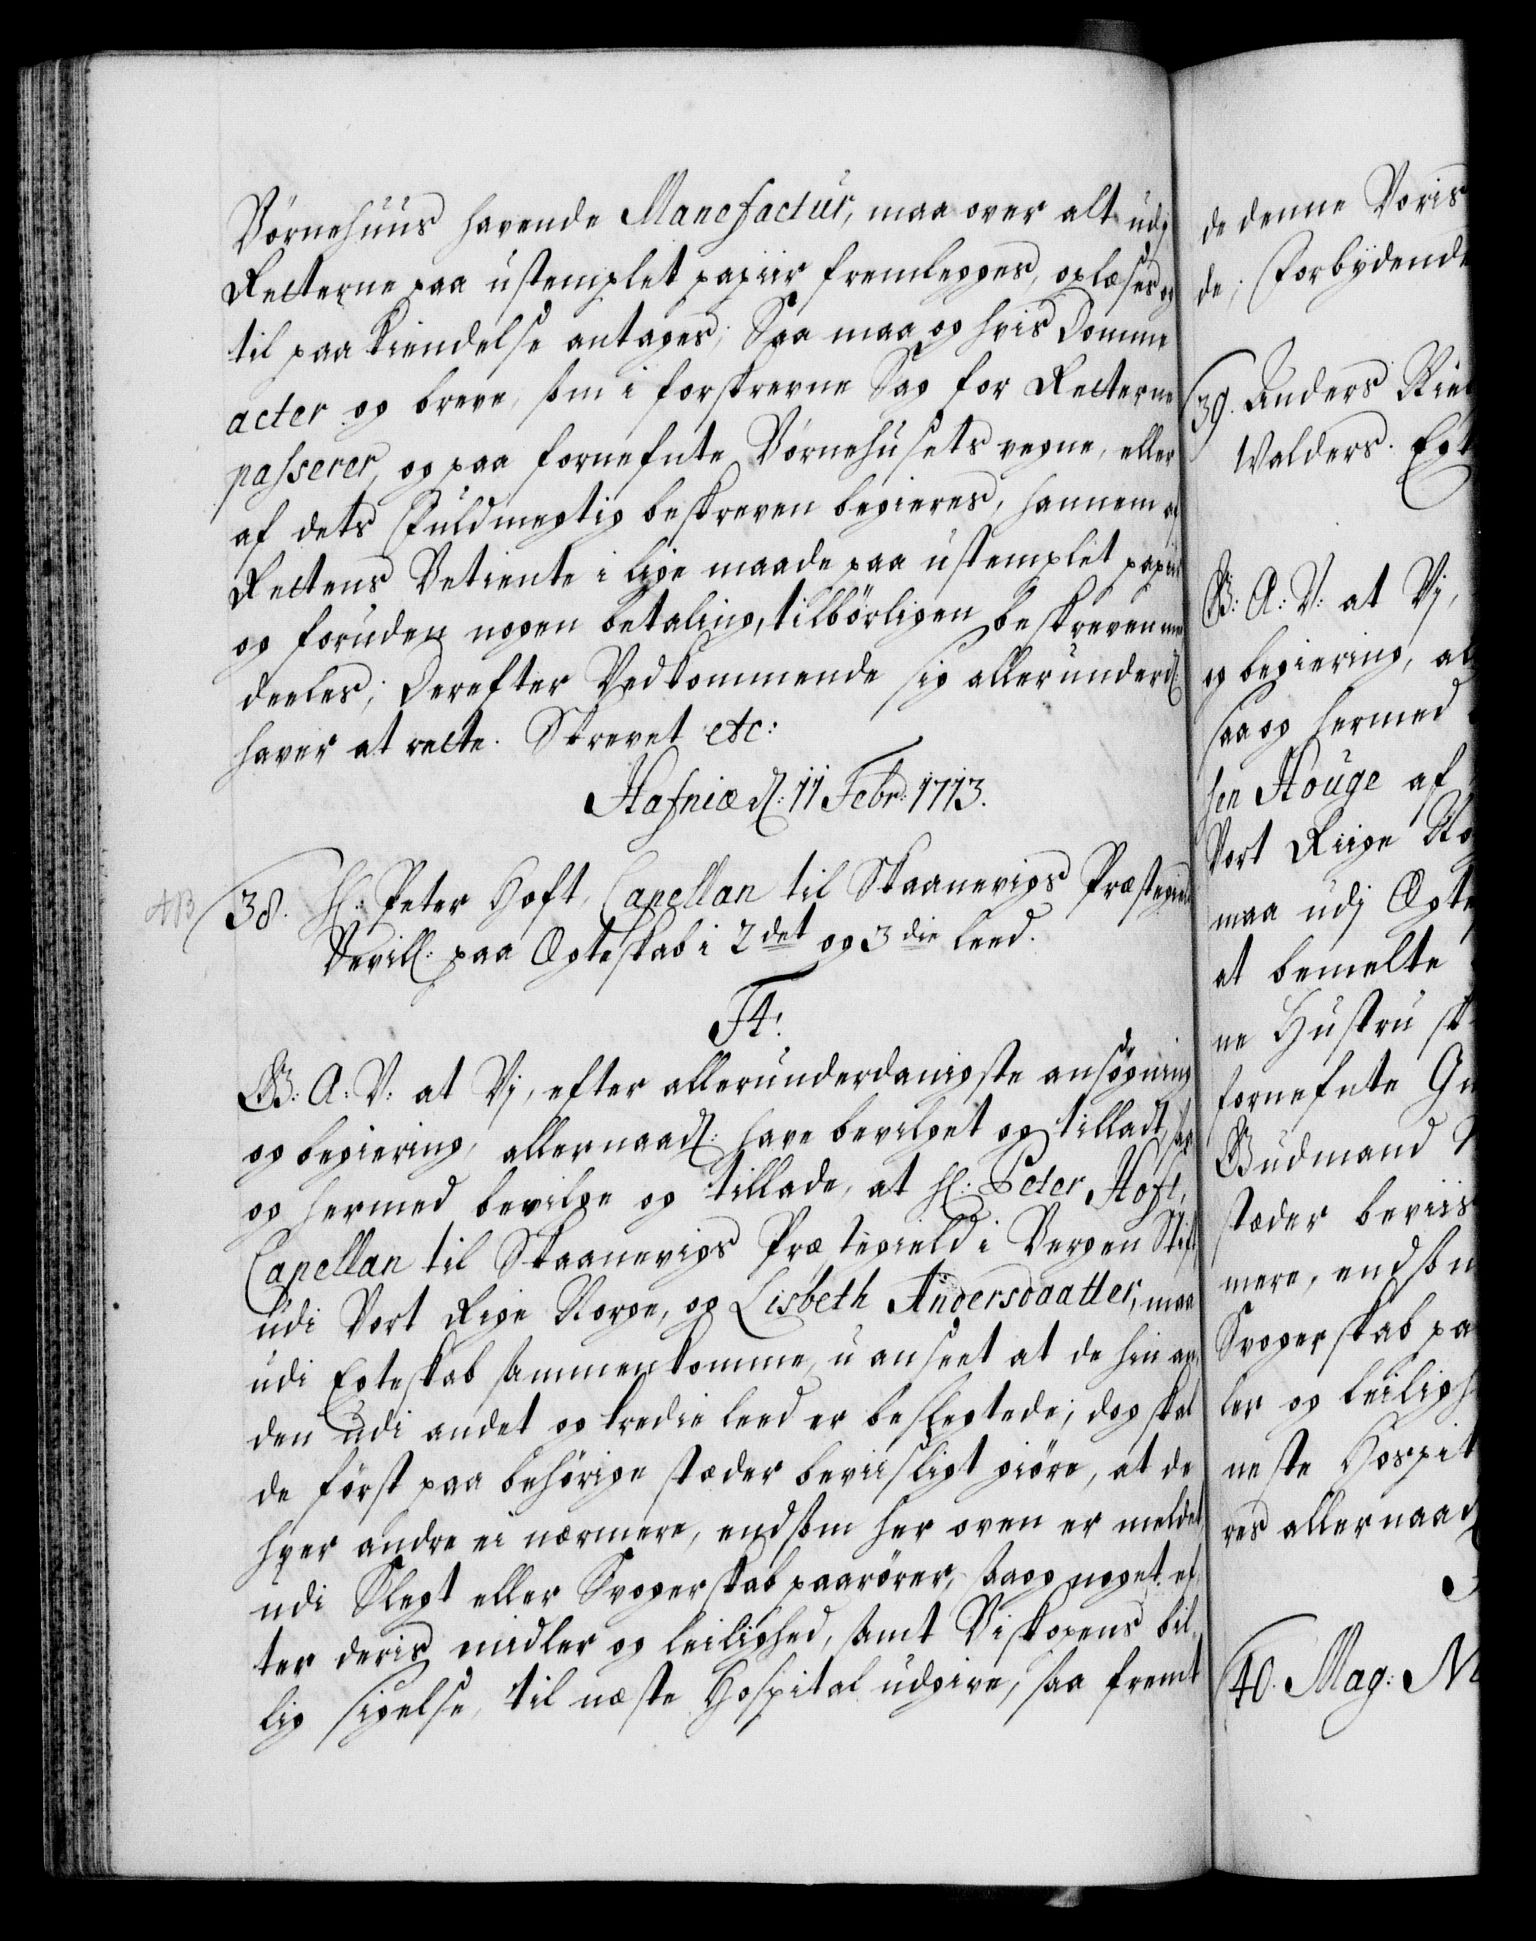 Børnehuus havende Manefactur, maa over alt udj
Retterne paa ustemplet papiir fremlegges, oplæses og
til paa kiendelse antages; Saa maa og hvis Domme
acter og breve, som i forskrevne Sag for Retterne
passerer, og paa fornefnte Børnehusets vegne, eller
af dets Fuldmegtig beskreven begieres, hannem af
Rettens Betiente i lige maade paa ustemplet papiir
og foruden nogen betaling, tilbørligen beskreven med
deeles; Derefter Vedkommende sig allerunderd:
haver at rette. Skrevet etc:
Hafniæ d: 11 Febr: 1713.
38. Hr: Peter Hoft, Capellan til Skaanevigs Præstegield
Bevill: paa Ægteskab i 2det og 3die leed.
F4.
G: A: V: at Vj, efter allerunderdanigste ansøgning
og begiering, allernaad: have bevilget og tilladt, saa
og hermed bevilge og tillade, at Hr: Peter Hoft,
Capellan til Skaanevigs Præstegield i Bergen Stift
udi Vort Rige Norge, og Lisbeth Andersdaatter, maa
udi Egteskab sammenkomme, u anseet at de hin an
den udi andet og tredie leed er beslegtede; dog skal
de først paa behørige stæder beviisligt giøre, at de
hver andre ei nærmere, end som her oven er meldet
udi Slegt eller Svogerskab paarører, saa og noget ef
ter deris midler og leilighed, samt Biskopens bil
lig sigelse, til næste Hospital udgive, saa fremt
de denne Voris
de; Forbydende
39. Anders Riel
Walders. Egt
G: A: V: at Vj,
og begiering, al
saa og hermed
sen Houge af
Vort Riige No
maa udj Ægte
at bemelte
ne Hustru sk
fornefnte Gu
Gudmand
stæder beviis
mere, end som
Svogerskab pa
ler og leiligh
neste Hospit
res allernaad
40. Mag: M